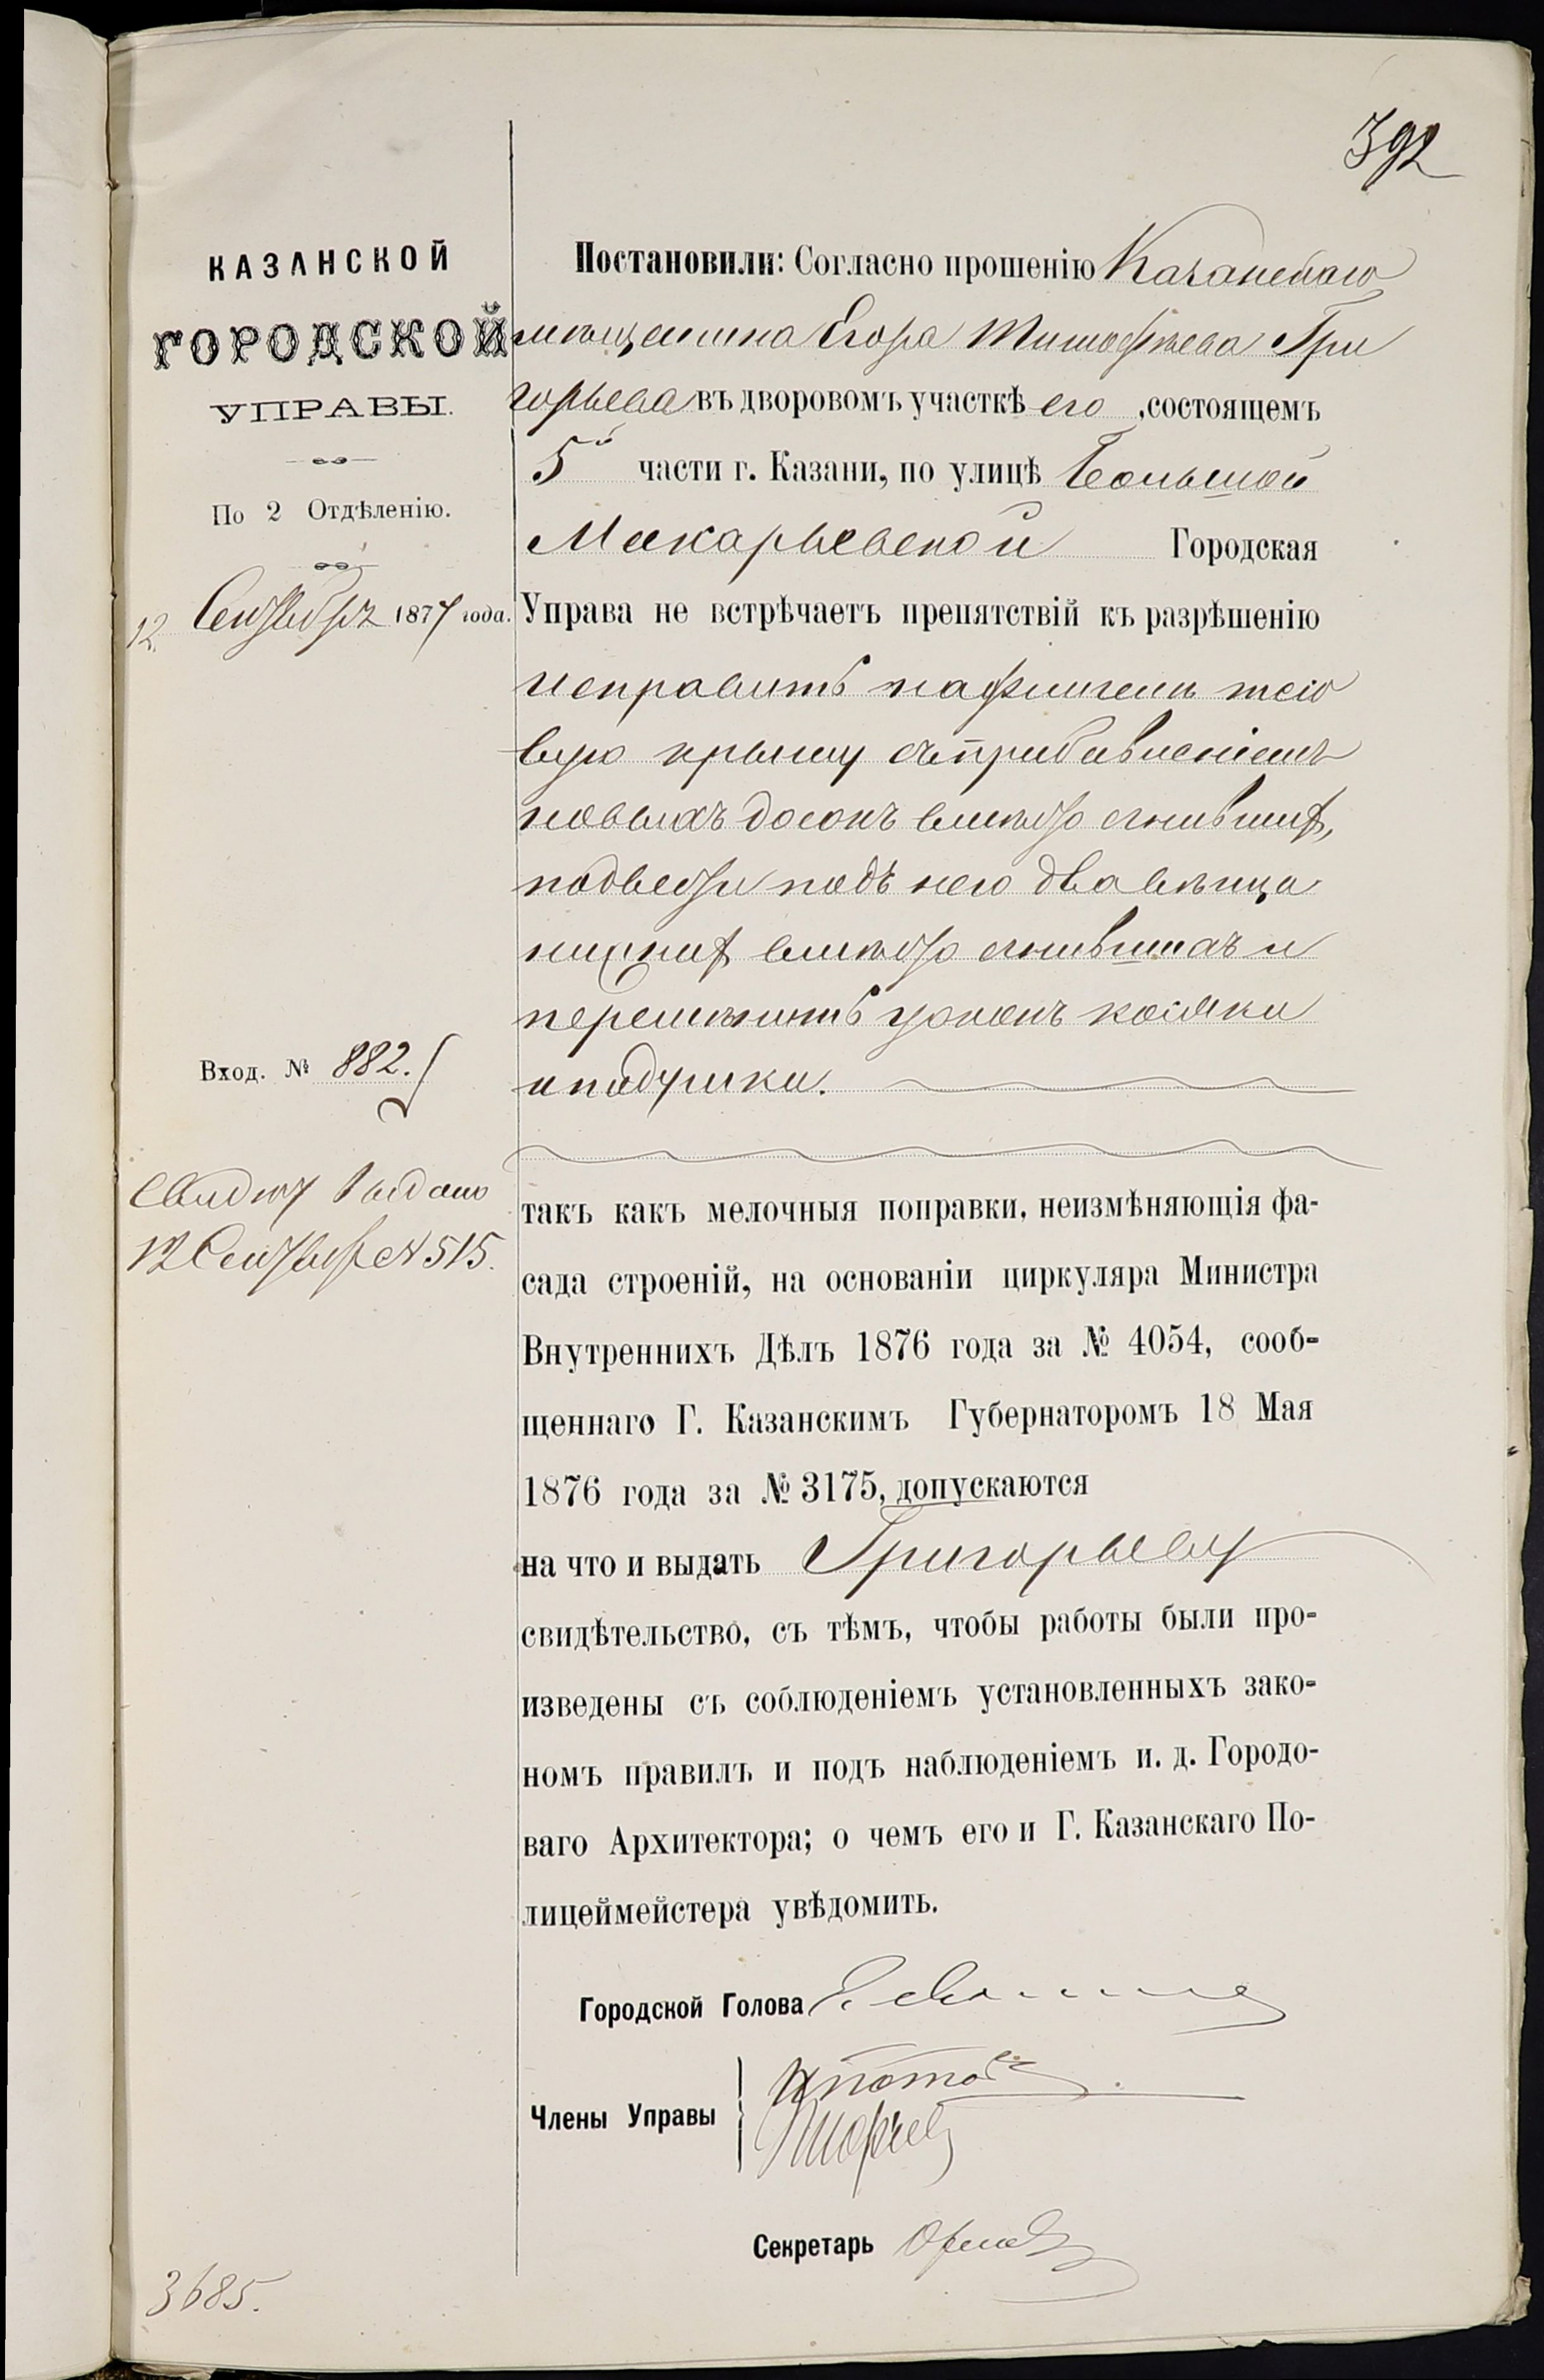 392
КАЗАНСКОЙ
ГОРОДСКОЙ
УПРАВЫ.
По 2 Отдѣленію.
12 Сентября 1877 года.
Вход. № 882.
Свидѣт выдано
12 Сентябр № 515.
3685.
Постановили: Согласно прошенію Казанскаго
мѣщанина Егора Тимофѣева Гри
горьева въ дворовомъ участкѣ его, состоящемъ
5й части г. Казани, по улицѣ Большой
Макарьевской Городская
Управа не встрѣчаетъ препятствій къ разрѣшенію
исправить на флигелѣ тесо
вую крышу съ прибавленіемъ
новыхъ досокъ вмѣсто сгнившихъ,
подвести подъ него два вѣнца
нижнихъ вмѣсто сгнившихъ и
перемѣнить у оконъ косяки
и подушки.
такъ какъ мелочныя поправки, неизмѣняющія фа-
сада строеній, на основаніи циркуляра Министра
Внутреннихъ Дѣлъ 1876 года за № 4054, сооб-
щеннаго Г. Казанскимъ Губернаторомъ 18 Мая
1876 года за № 3175, допускаются
на что и выдать Григорьеву
свидѣтельство, съ тѣмъ, чтобы работы были про-
изведены съ соблюденіемъ установленныхъ зако-
номъ правилъ и подъ наблюденіемъ и. д. Городо-
ваго Архитектора; о чемъ его и Г. Казанскаго По-
лицеймейстера увѣдомить.
Городской Голова
Члены Управы
Секретарь Орлов